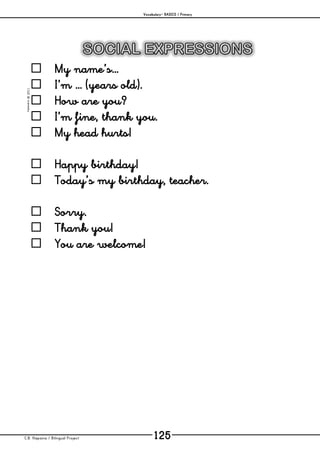 Vocabulary- BASICS / Primary
SOCIAL EXPRESSIONS
My name's...
I'm ... (years old).
How are you?
I'm fine, thank you.
My head hurts!
Happy birthday!
Today's my birthday, teacher.
Sorry.
Thank you!
You are welcome!
C.B. Riquiaire / Bilingual Project
125